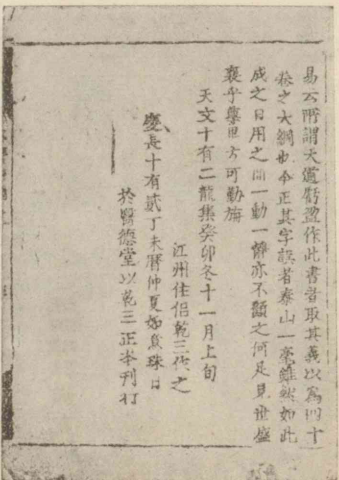 易云所謂天道虧盈作此書者取其義以為四十
卷之大綱也今正其字誤者泰山一毫雖然如此
成之日用之間一動一靜亦不顯之何足見世盛
衰乎藥里方可勤旃
天文十有二龍集癸卯冬十一月上旬
江州住侶乾三作之
慶長十有貳丁未曆仲夏如意珠日
於醫德堂以乾三正本刊行